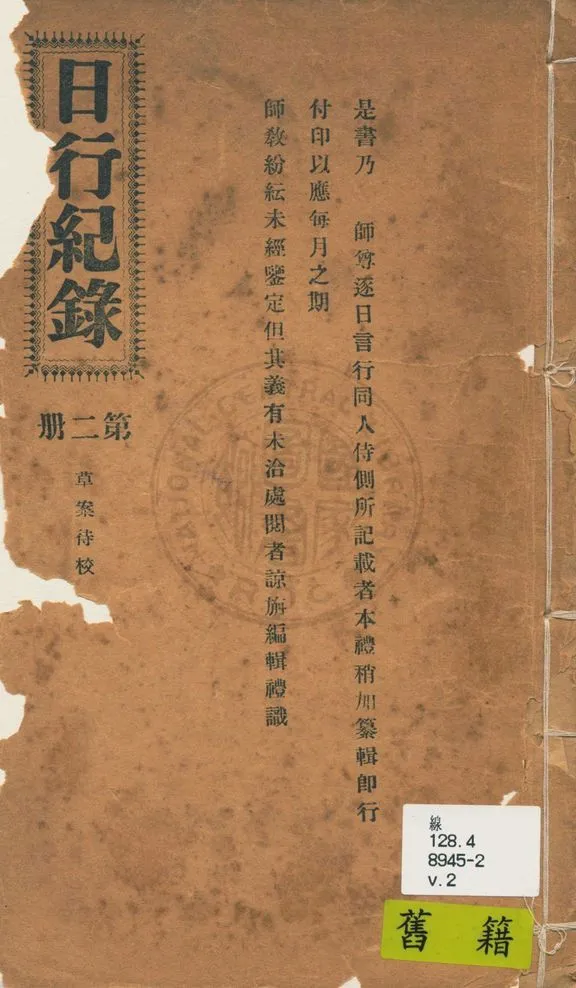 是書乃 師尊逐日言行同人侍側所記載者本禮稍加纂輯即行
付印以應每月之期
師教紛紜未經鑒定但其義有未洽處閱者諒旃編輯禮識
日行紀錄
第二册
草案待校
線
128.4
8945-2
v.2
舊籍